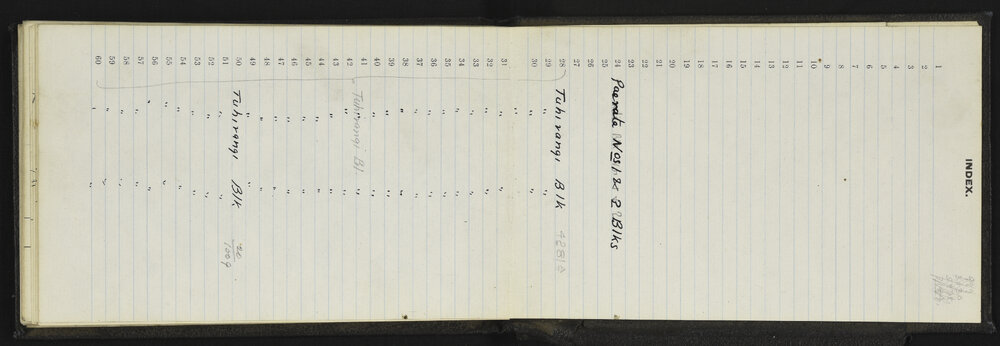 INDEX.
1
2
3
4
5
6
7
8
9
10
11
12
13
14
15
16
17
18
19
20
21
22
23
24 Paerata Nos 1 & 2 Blks
25
26
27
28 Tuhirangi Blk
29 " "
30 " "
31 " "
32 " "
33 " "
34 " "
35 " "
36 " "
37 " "
38 " "
39 " "
40 " "
41 " "
42 Tuhirangi Bl.
43 " "
44 " "
45 " "
46 " "
47 " "
48 " "
49 " "
50 Tuhirangi Blk
51 " "
52 " "
53 " "
54 " "
55 " "
56 " "
57 " "
58 " "
59 " "
60 " "